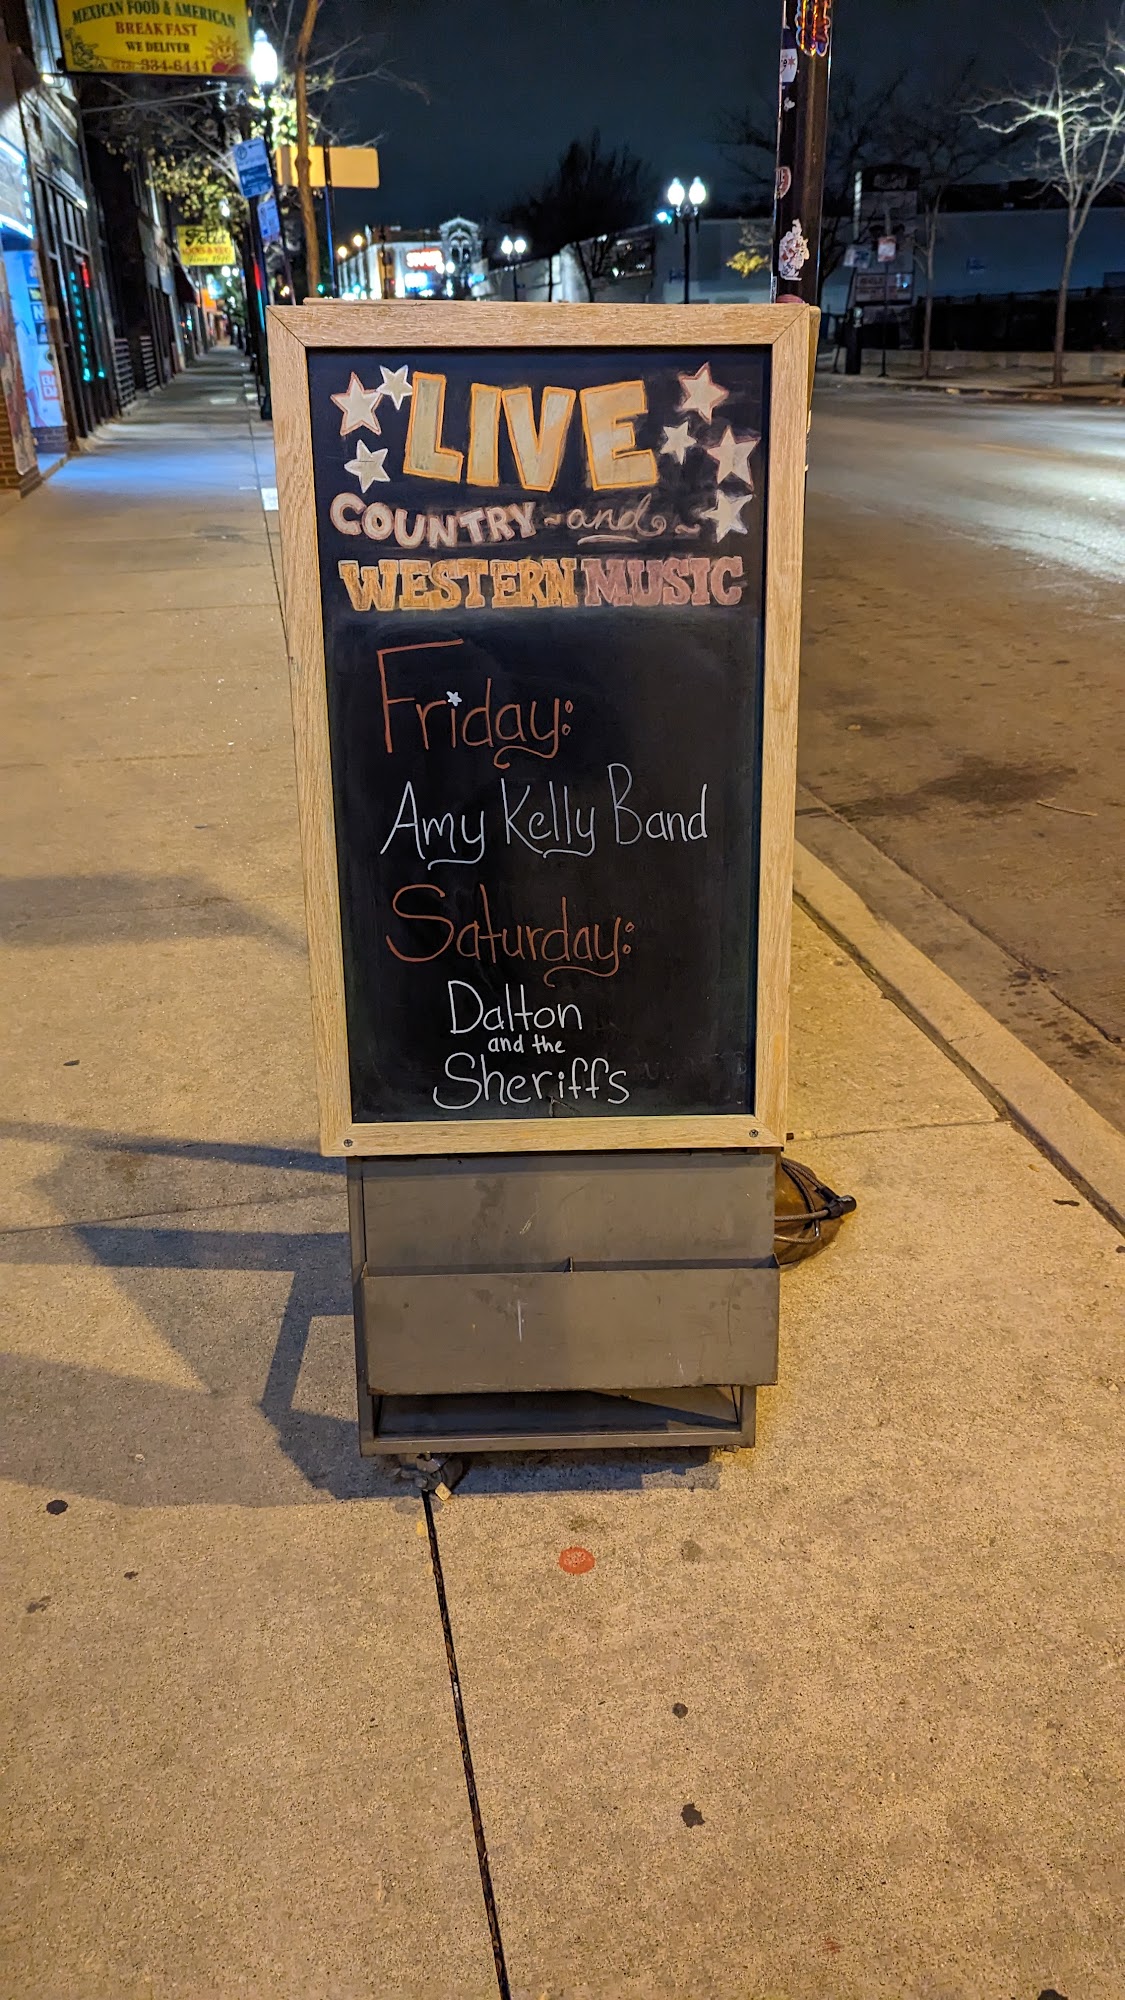 MEXICAN FOOD & AMERICAN
BREAKFAST
WE DELIVER
334-6441
LIVE
COUNTRY ~and~
WESTERN MUSIC
Friday:
Amy Kelly Band
Saturday:
Dalton
and the
Sheriffs